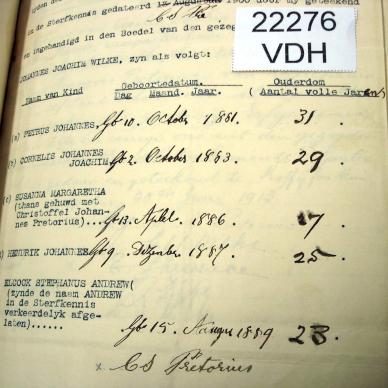 de Sterfkennis gedateerd 1900 door my geteekend
en ingehandigd in den Boedel van den
22276
VDH
JOHANNES JOACHIM WILKE, zyn als volgt:
Geboortedatum. Ouderdom
Naam van Kind Dag Maand. Jaar. (Aantal volle Jaren)
(a) PETRUS JOHANNES, Geb 10. October 1881. 31.
(b) CORNELIS JOHANNES
JOACHIM, Geb 2. October 1883. 29.
(c) SUSANNA MARGARETHA
(thans gehuwd met
Christoffel Johan-
nes Pretorius)... Geb 13. April 1886. 17.
HENDRIK JOHANNES Geb 9. Dezember 1887. 25.
ELCOCK STEPHANUS ANDREW(
(zynde de naam ANDREW
in de Sterfkennis
verkeerdelyk afge-
laten)...... Geb 15. 1889 23.
x CS Pretorius